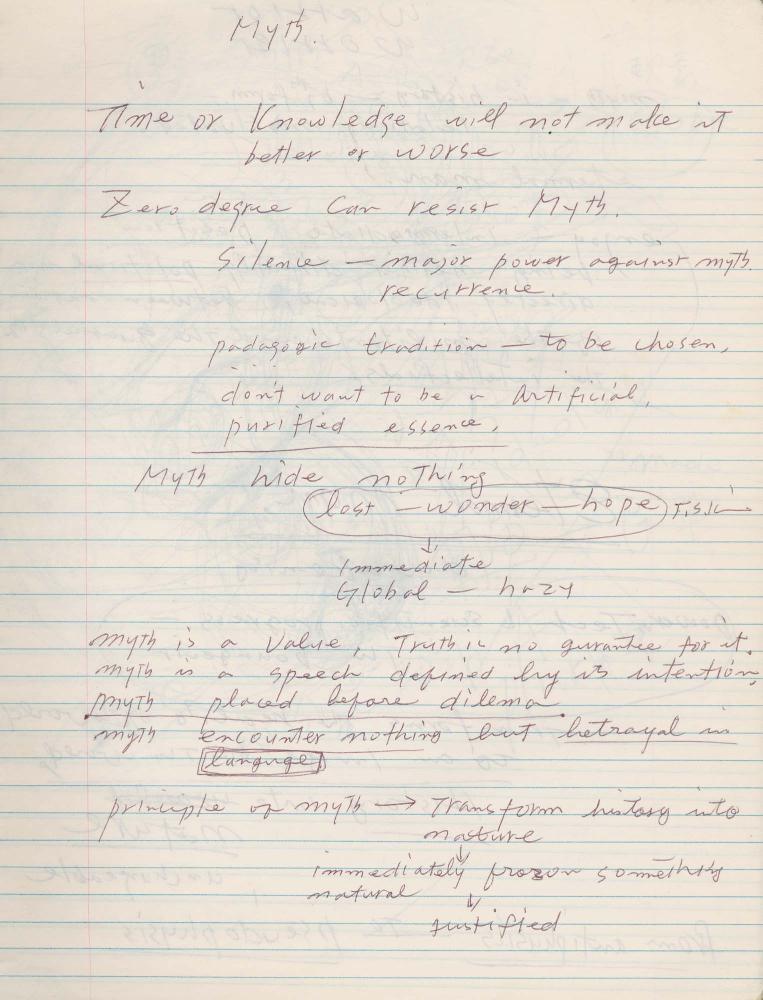 Myth.
Time or Knowledge will not make it
better or worse
Zero degree can resist Myth.
Silence — major power against myth.
recurrence.
padagogic tradition — to be chosen,
don't want to be a Artificial,
purified essence.
Myth hide nothing
lost — wonder — hope
Immediate
Global — hazy
myth is a value, Truth is no gurantee for it.
myth is a speech defined by its intention,
myth placed before dilema
myth encounter nothing but betrayal in
language
principle of myth → Transform history into
nasture
immediately frozon something
natural
justified